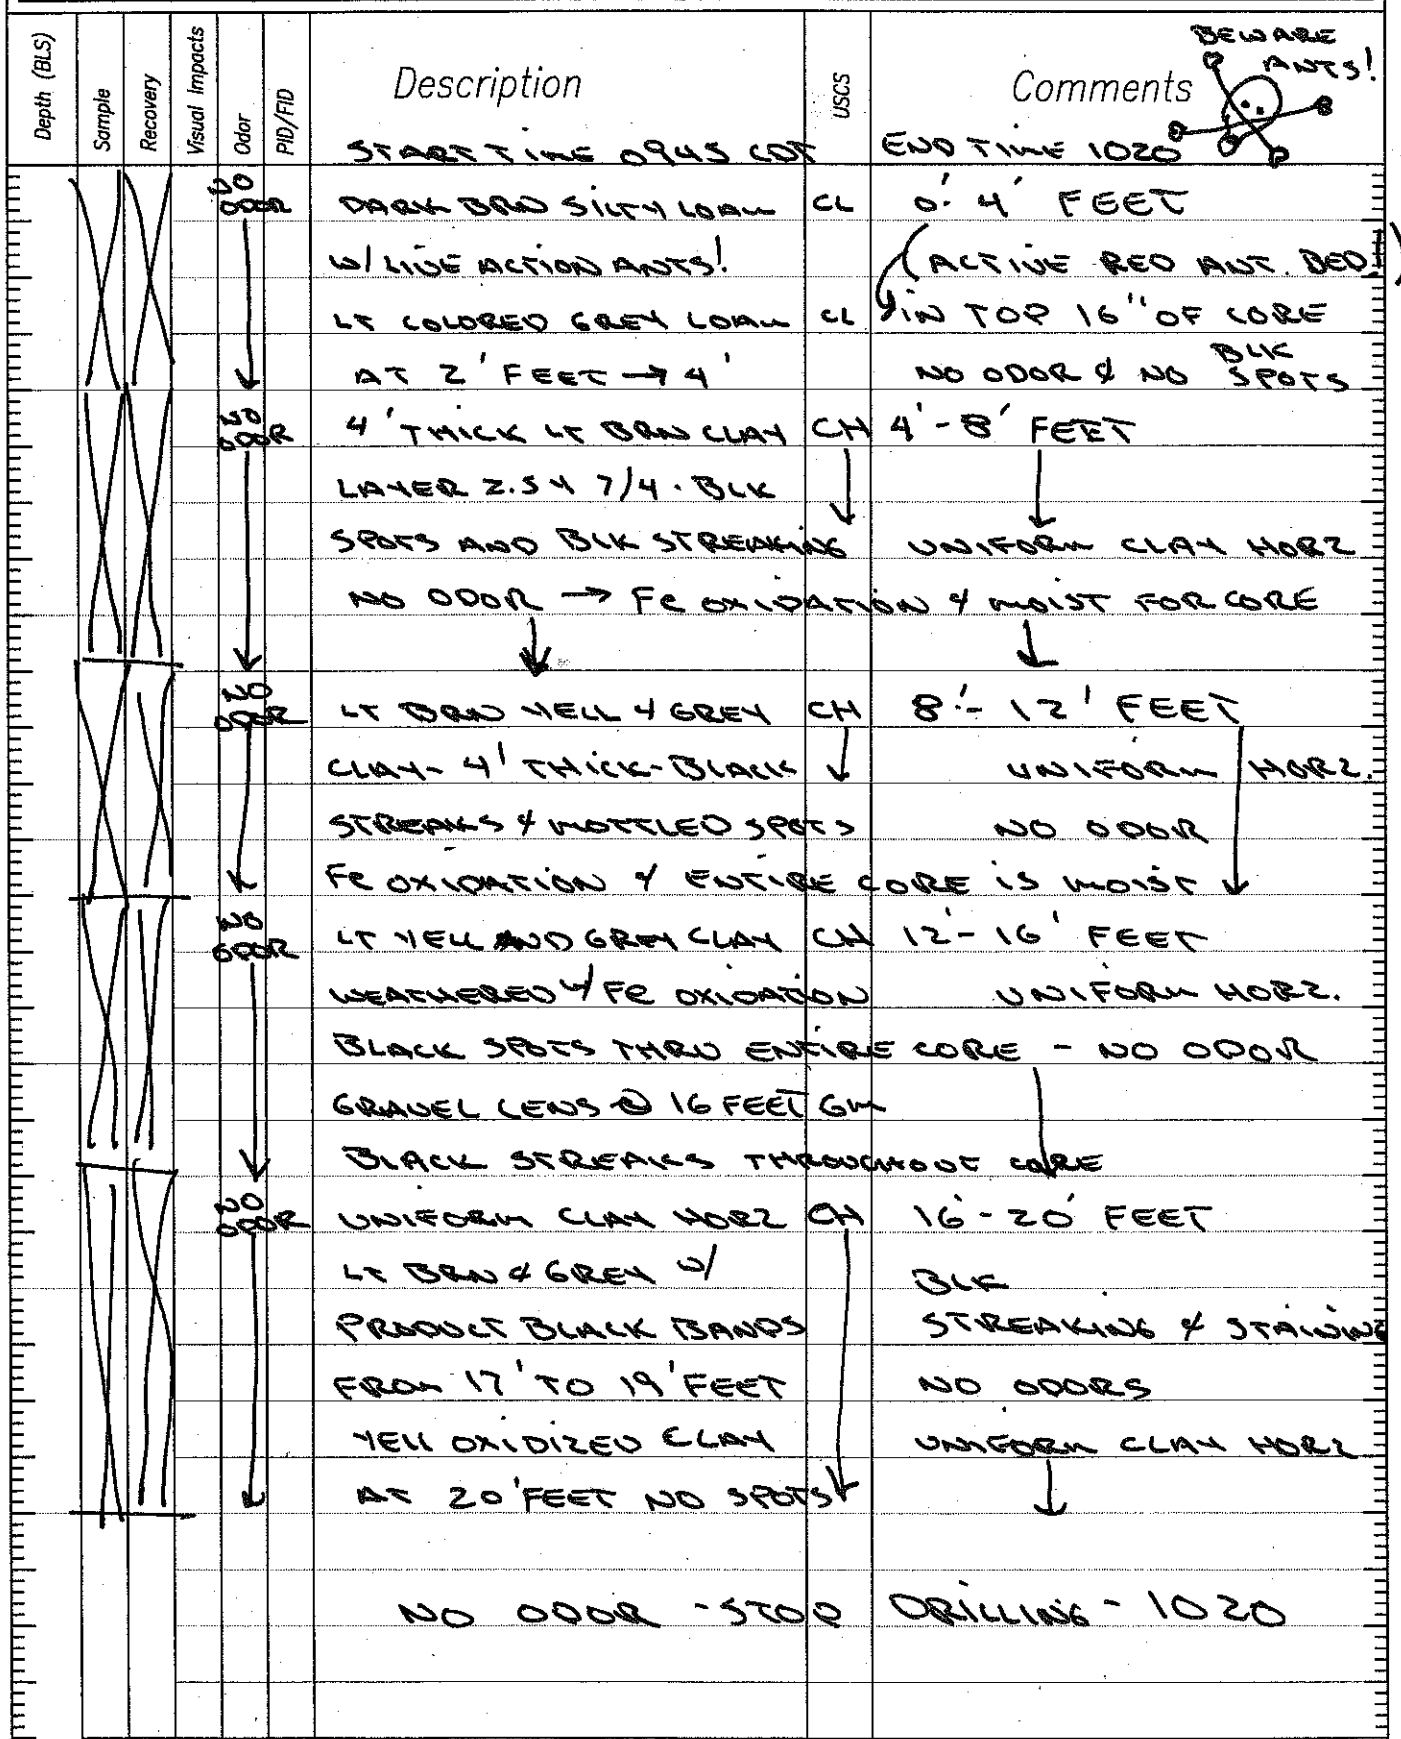 Depth (BLS) Sample Recovery Visual Impacts Odor PID/FID Description USCS Comments
BEWARE
ANTS!
START TIME 0945 CDT END TIME 1020
NO
ODOR DARK BRN SILTY LOAM CL 0'-4' FEET
W/ LIVE ACTION ANTS! (ACTIVE RED ANT. BED!!)
LT COLORED GREY LOAM CL IN TOP 16" OF CORE
AT 2' FEET → 4' NO ODOR & NO BLK SPOTS
NO
ODOR 4' THICK LT BRN CLAY CH 4'-8' FEET
LAYER 2.5Y 7/4. BLK
SPOTS AND BLK STREAKING UNIFORM CLAY HORZ
NO ODOR → Fe OXIDATION & MOIST FOR CORE
NO
ODOR LT BRN YELL & GREY CH 8'-12' FEET
CLAY- 4' THICK-BLACK UNIFORM HORZ.
STREAKS & MOTTLED SPOTS NO ODOR
Fe OXIDATION & ENTIRE CORE IS MOIST
NO
ODOR LT YELL AND GREY CLAY CH 12'-16' FEET
WEATHERED W/ Fe OXIDATION UNIFORM HORZ.
BLACK SPOTS THRU ENTIRE CORE - NO ODOR
GRAVEL LENS @ 16 FEET GM
BLACK STREAKS THROUGHOUT CORE
NO
ODOR UNIFORM CLAY HORZ CH 16'-20' FEET
LT BRN & GREY W/ BLK
PRODUCT BLACK BANDS STREAKING & STAINING
FROM 17' TO 19' FEET NO ODORS
YELL OXIDIZED CLAY UNIFORM CLAY HORZ
AT 20' FEET NO SPOTS
NO ODOR - STOP DRILLING - 1020